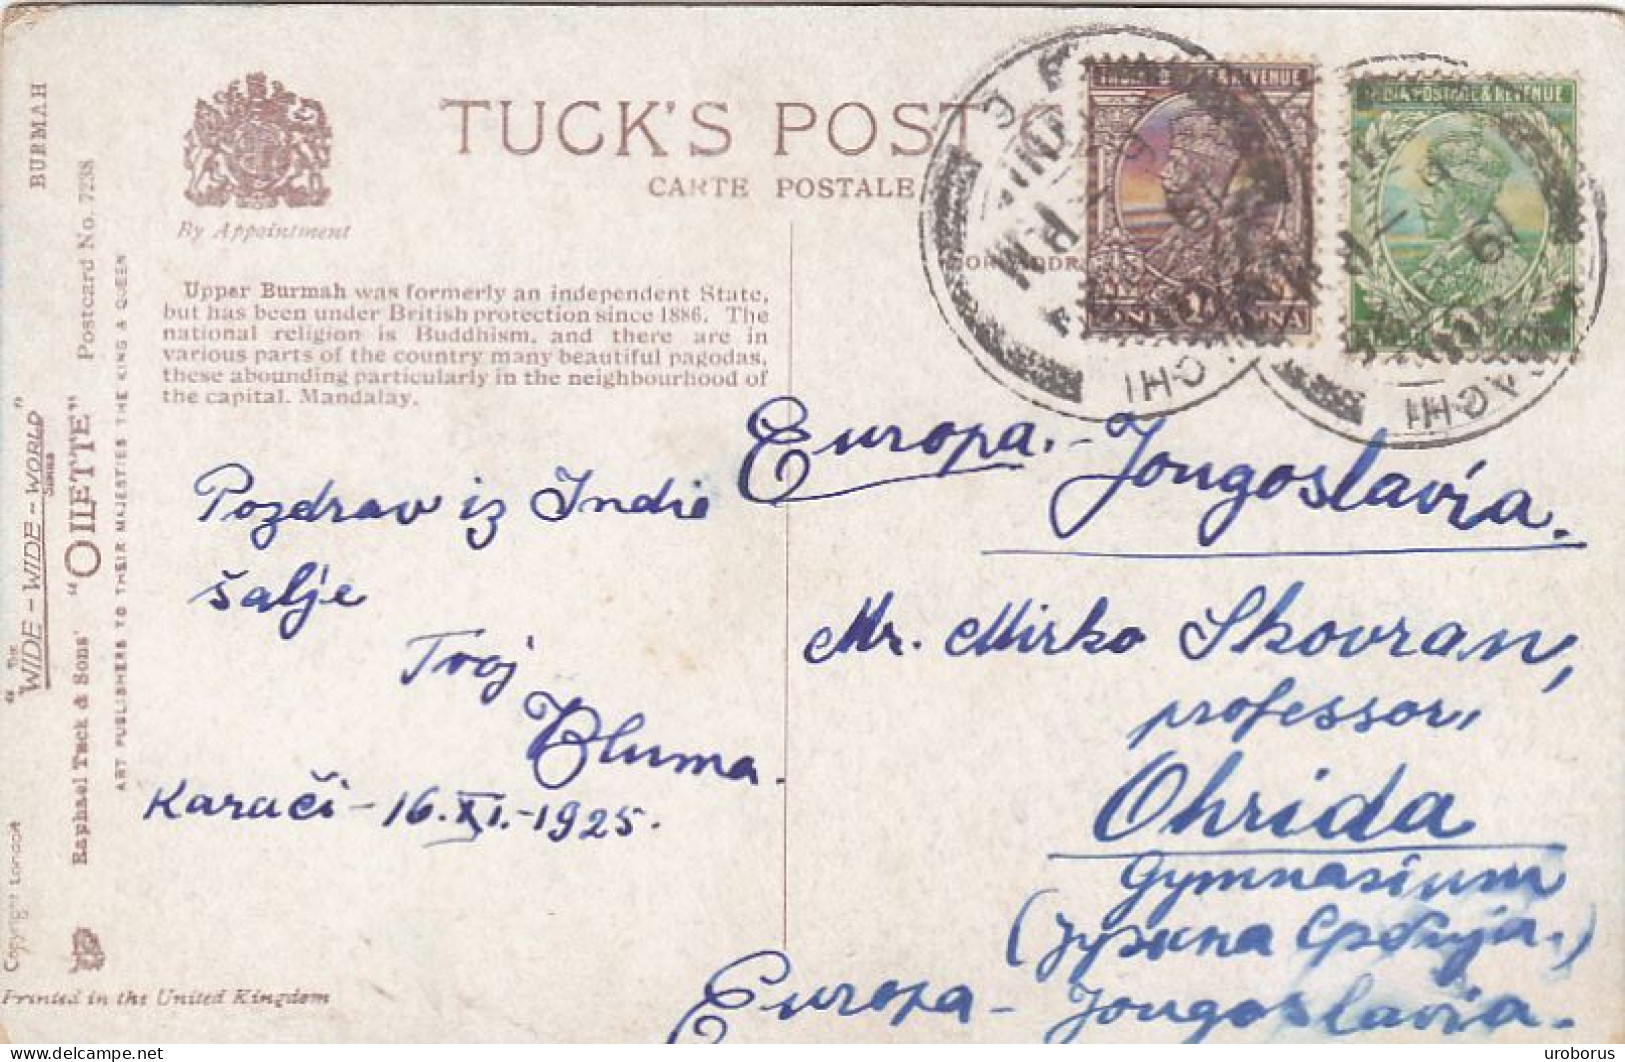 TUCK'S POST
CARTE POSTALE
By Appointment
Upper Burmah was formerly an independent State,
but has been under British protection since 1886. The
national religion is Buddhism, and there are in
various parts of the country many beautiful pagodas,
these abounding particularly in the neighbourhood of
the capital. Mandalay.
BURMAH
Postcard No. 7238
"THE
WIDE-WIDE-WORLD"
SERIES
Raphael Tuck & Sons' "OILETTE"
ART PUBLISHERS TO THEIR MAJESTIES THE KING & QUEEN
Copyright London
Printed in the United Kingdom
INDIA POSTAGE & REVENUE
ONE 1A ANNA
INDIA POSTAGE & REVENUE
Pozdrav iz Indie
šalje
Tvoj
Bluma.
Karači - 16.XI.-1925.
Europa. - Jougoslavia.
Mr. Mirko Skovran,
professor,
Ohrida
Gymnasium
(Јужна Србија.)
Europa - Jougoslavia.
uroborus